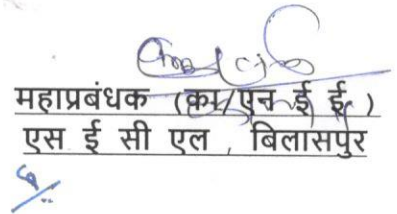 महाप्रबंधक (का/एन ई ई )
एस ई सी एल , बिलासपुर